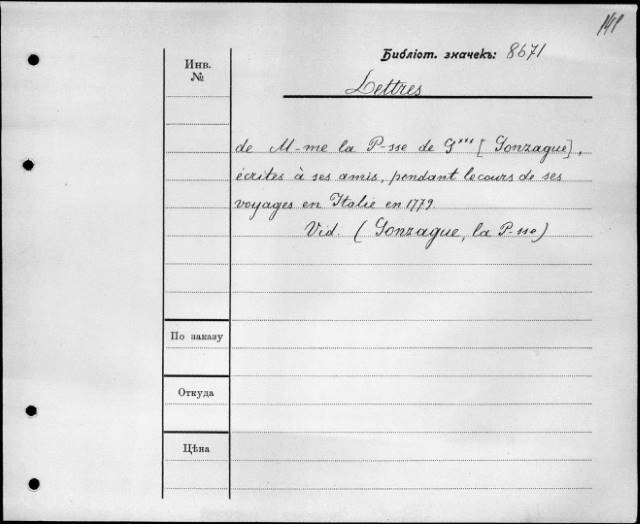 Библіот. значекъ: 8671
Инв.
№
Lettres
de M-me la P-sse de G*** [Gonzague],
écrites à ses amis, pendant le cours de ses
voyages en Italie en 1779.
Vid. (Gonzague, la P-sse)
По заказу
Откуда
Цѣна